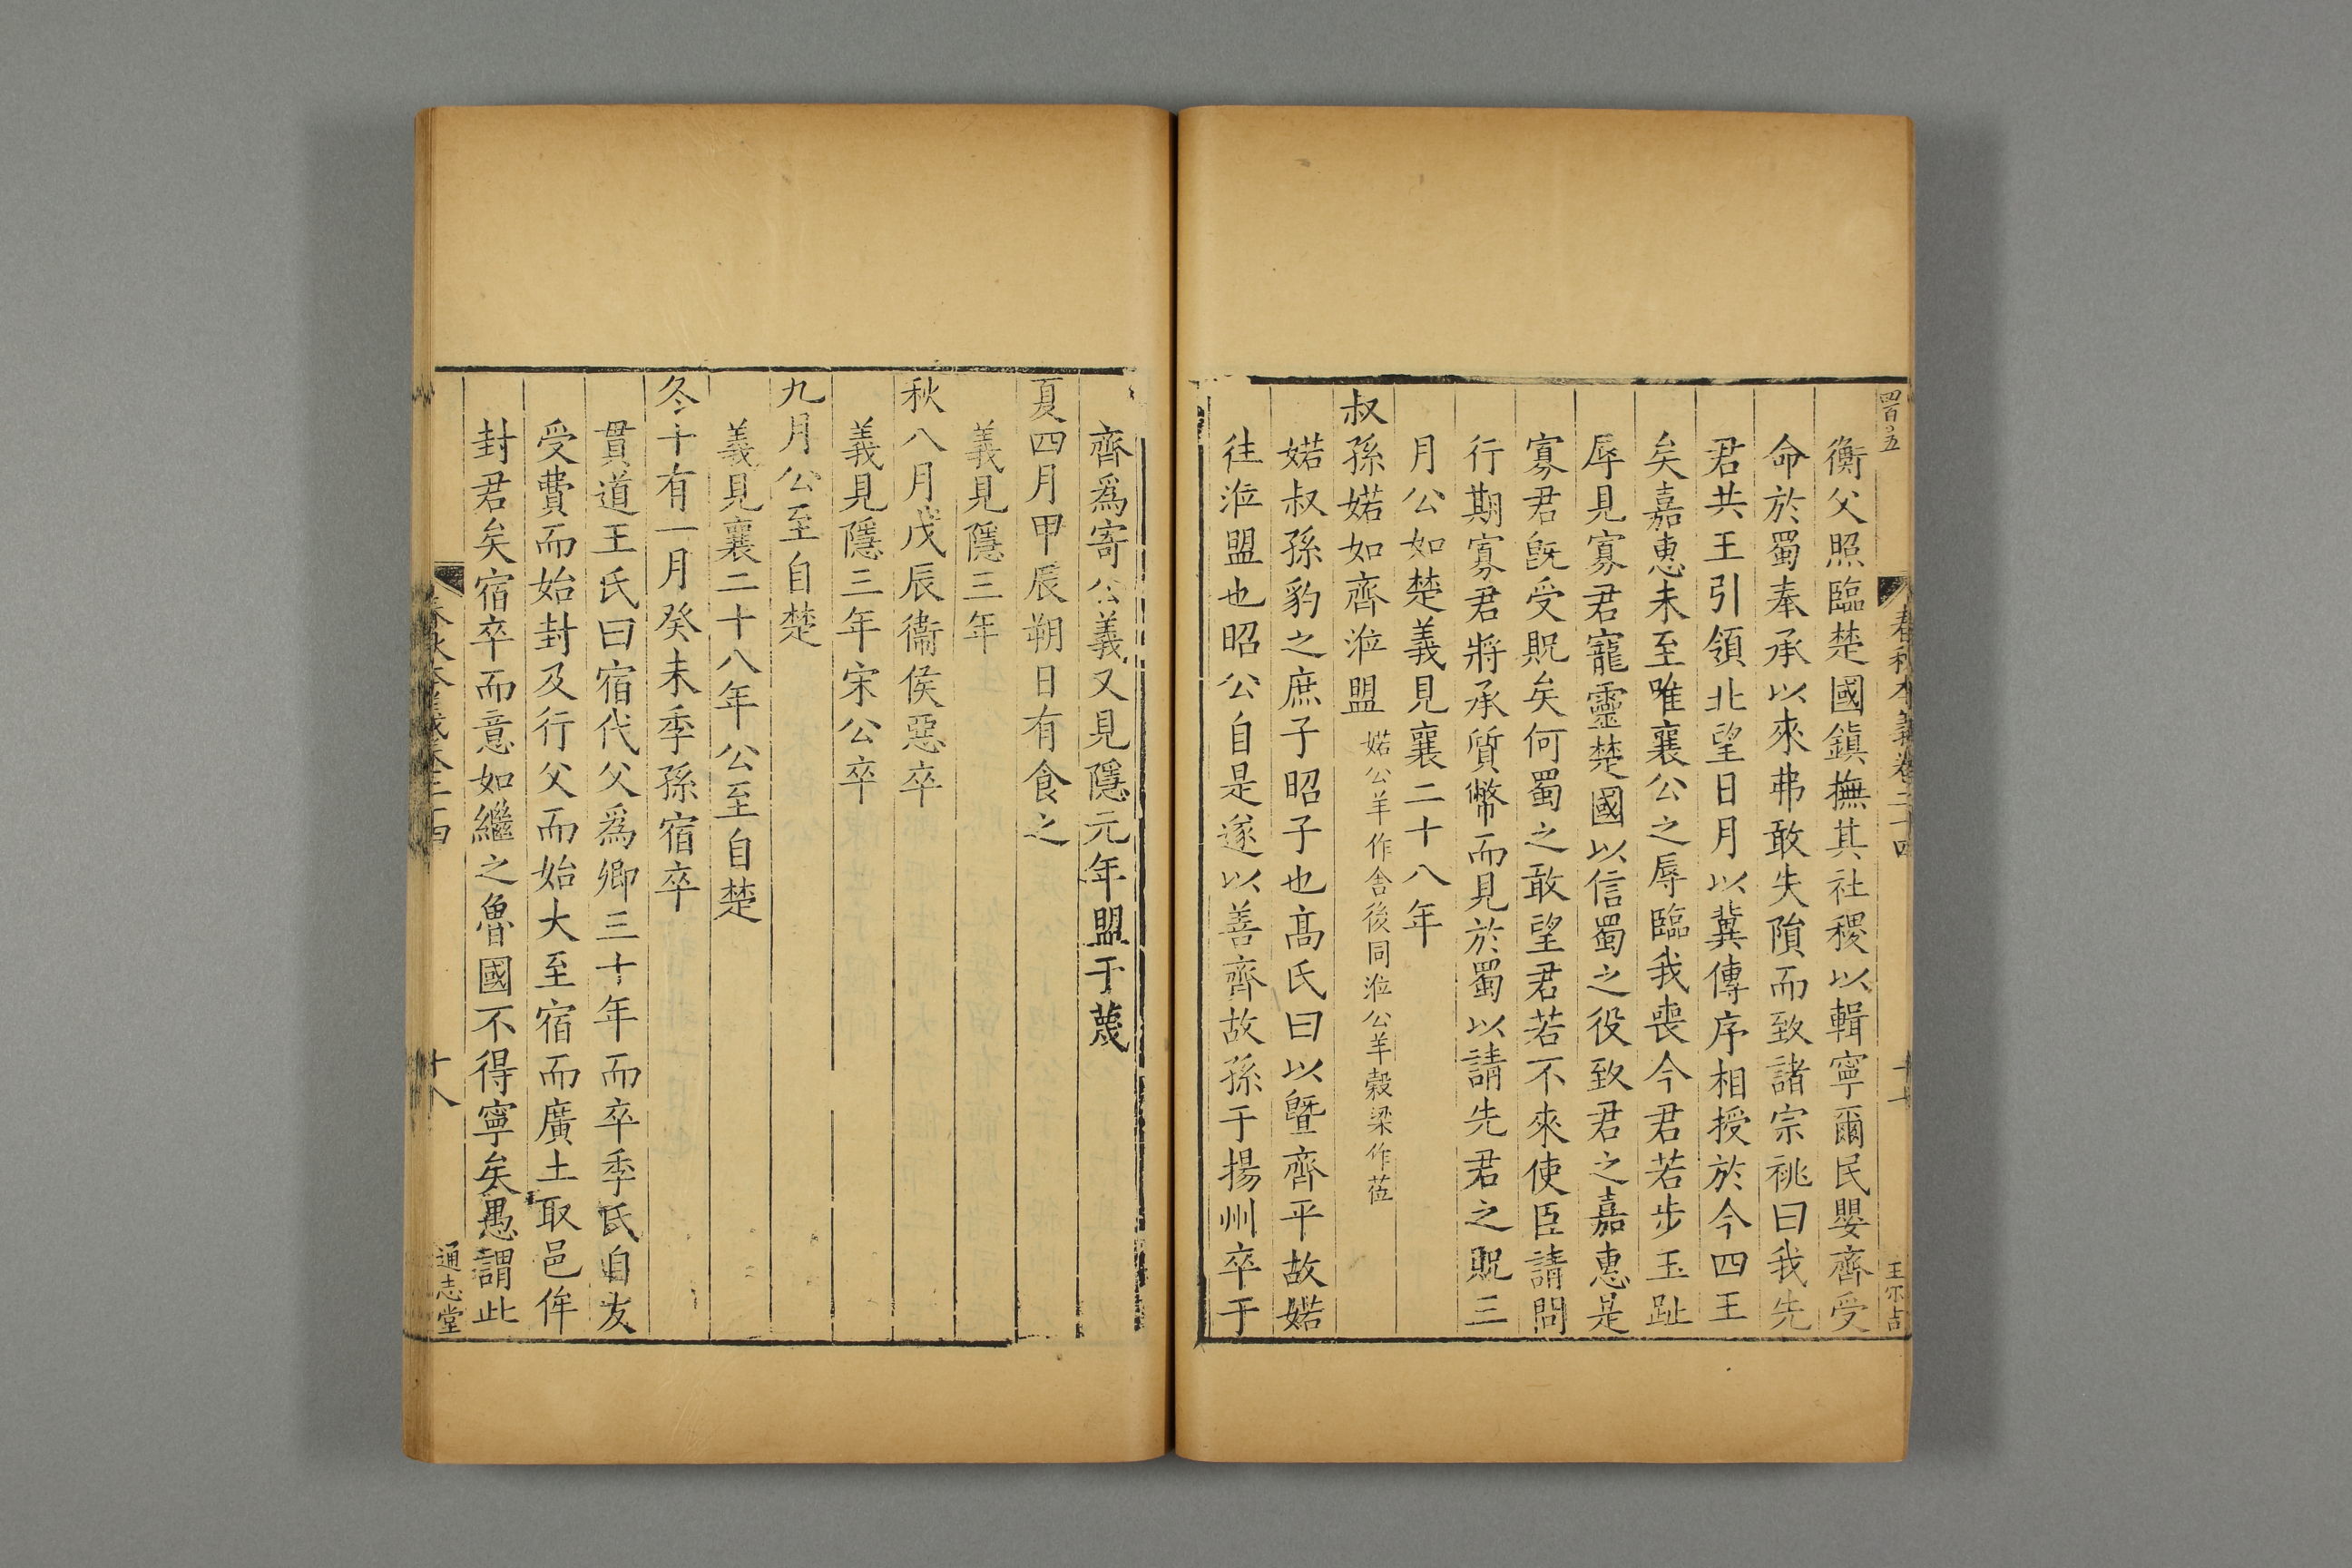 四百〇五
春秋本義卷二十四
十七
王尔吉
衡父照臨楚國鎮撫其社稷以輯寧爾民嬰齊受
命於蜀奉承以來弗敢失隕而致諸宗祧曰我先
君共王引領北望日月以兾傳序相授於今四王
矣嘉惠未至唯襄公之辱臨我喪今君若步玉趾
辱見寡君寵靈楚國以信蜀之役致君之嘉惠是
寡君旣受貺矣何蜀之敢望君若不來使臣請問
行期寡君將承質幣而見於蜀以請先君之貺三
月公如楚義見襄二十八年
叔孫婼如齊涖盟婼公羊作舍後同涖公羊榖梁作莅
婼叔孫豹之庶子昭子也髙氏曰以曁齊平故婼
往涖盟也昭公自是遂以善齊故孫于揚州卒于
齊爲寄公義又見隱元年盟于蔑
夏四月甲辰朔日有食之
義見隱三年
秋八月戊辰衞侯惡卒
義見隱三年宋公卒
九月公至自楚
義見襄二十八年公至自楚
冬十有一月癸未季孫宿卒
貫道王氏曰宿代父爲卿三十年而卒季氏自友
受費而始封及行父而始大至宿而廣土取邑侔
封君矣宿卒而意如繼之魯國不得寧矣愚謂此
春秋本義卷二十四
十八
通志堂